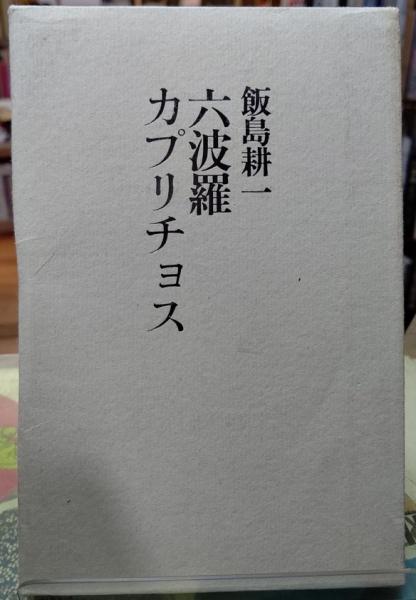 飯島耕一
六波羅
カプリチョス